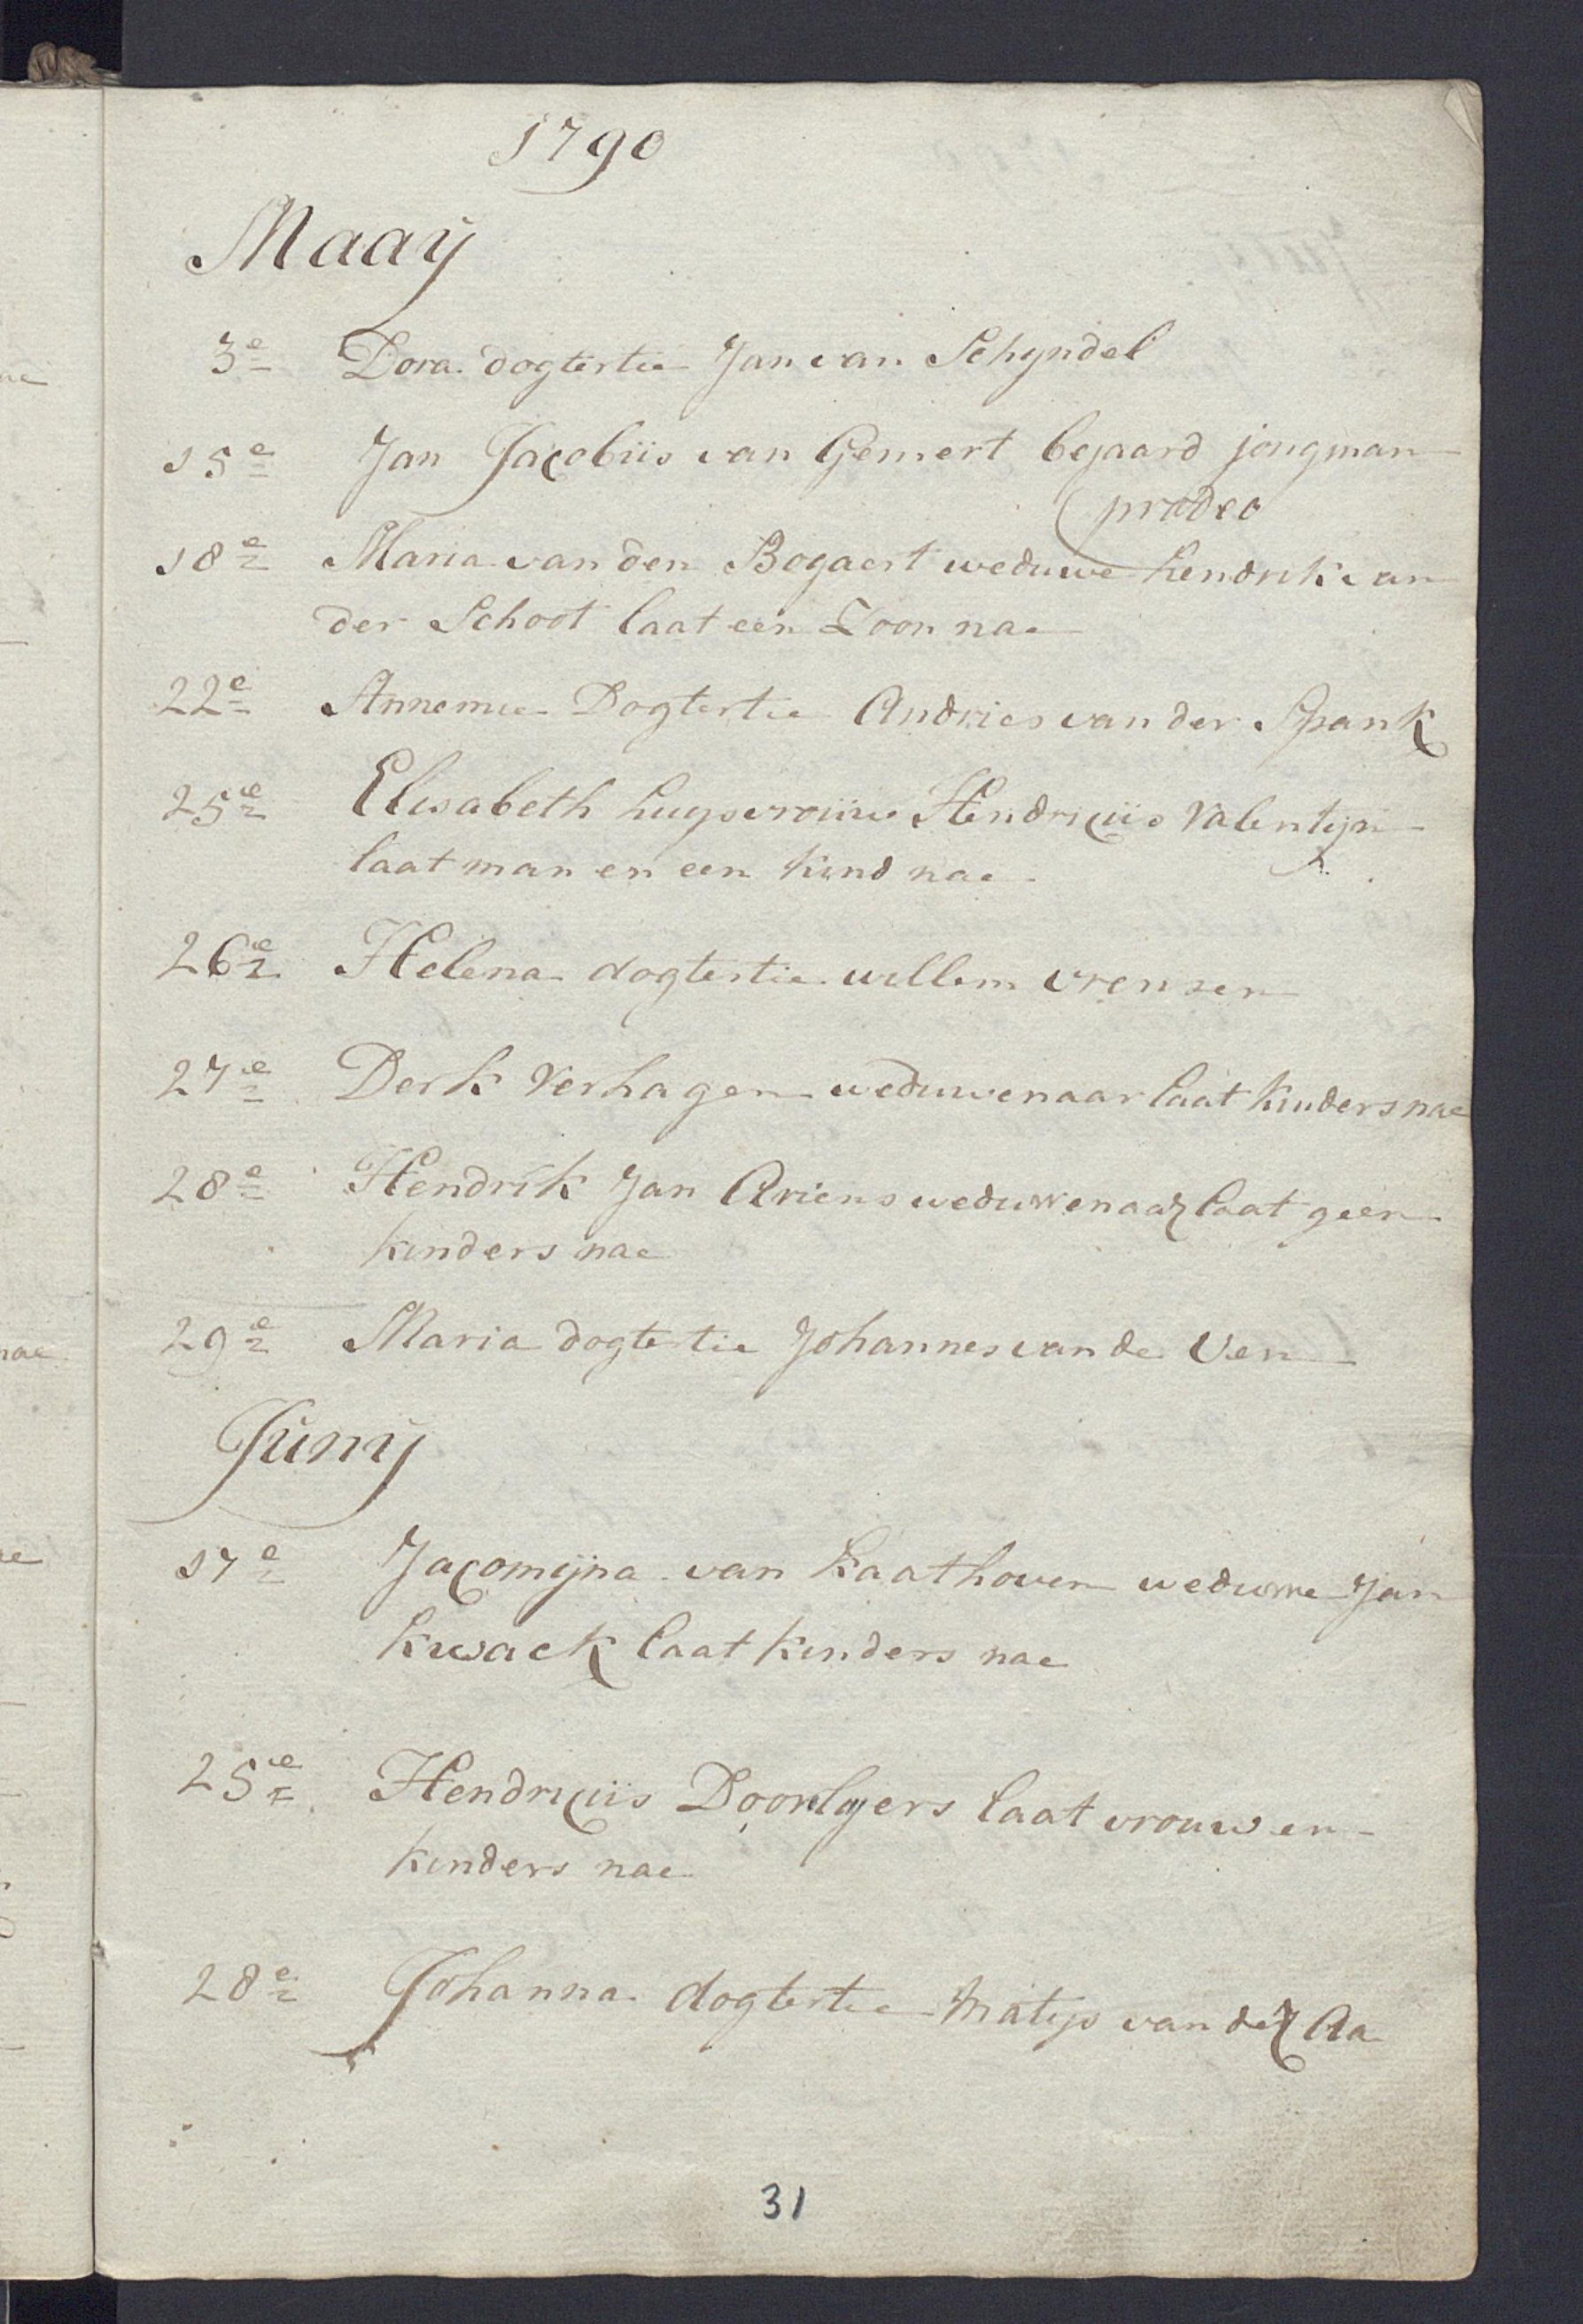 1790
Maaÿ
3e Dora dogtertie Jan van Schyndel
15e Jan Jacobüs van Gemert bejaard jongman
prodeo
18e Maria van den Bogaert weduwe hendrik van
der Schoot laat een Zoon nae
22e Annemie Dogtertie Andries van der Spank
25e Elisabeth huysvrouw Hendricüs Valentijn
laat man en een kind nae
26e Helena dogtertie willem vrensen
27e Derk Verhagen weduwenaar laat kinders nae
28e Hendrik Jan Ariens weduwenaar laat geen
kinders nae
29e Maria dogtertie Johannes van de Ven
Junij
17e Jacomijna van Kaathoven weduwe Jan
kwack laat kinders nae
25e Hendricüs Doorleyers laat vrouw en
kinders nae
28e Johanna dogtertie Matijs van der Aa
31